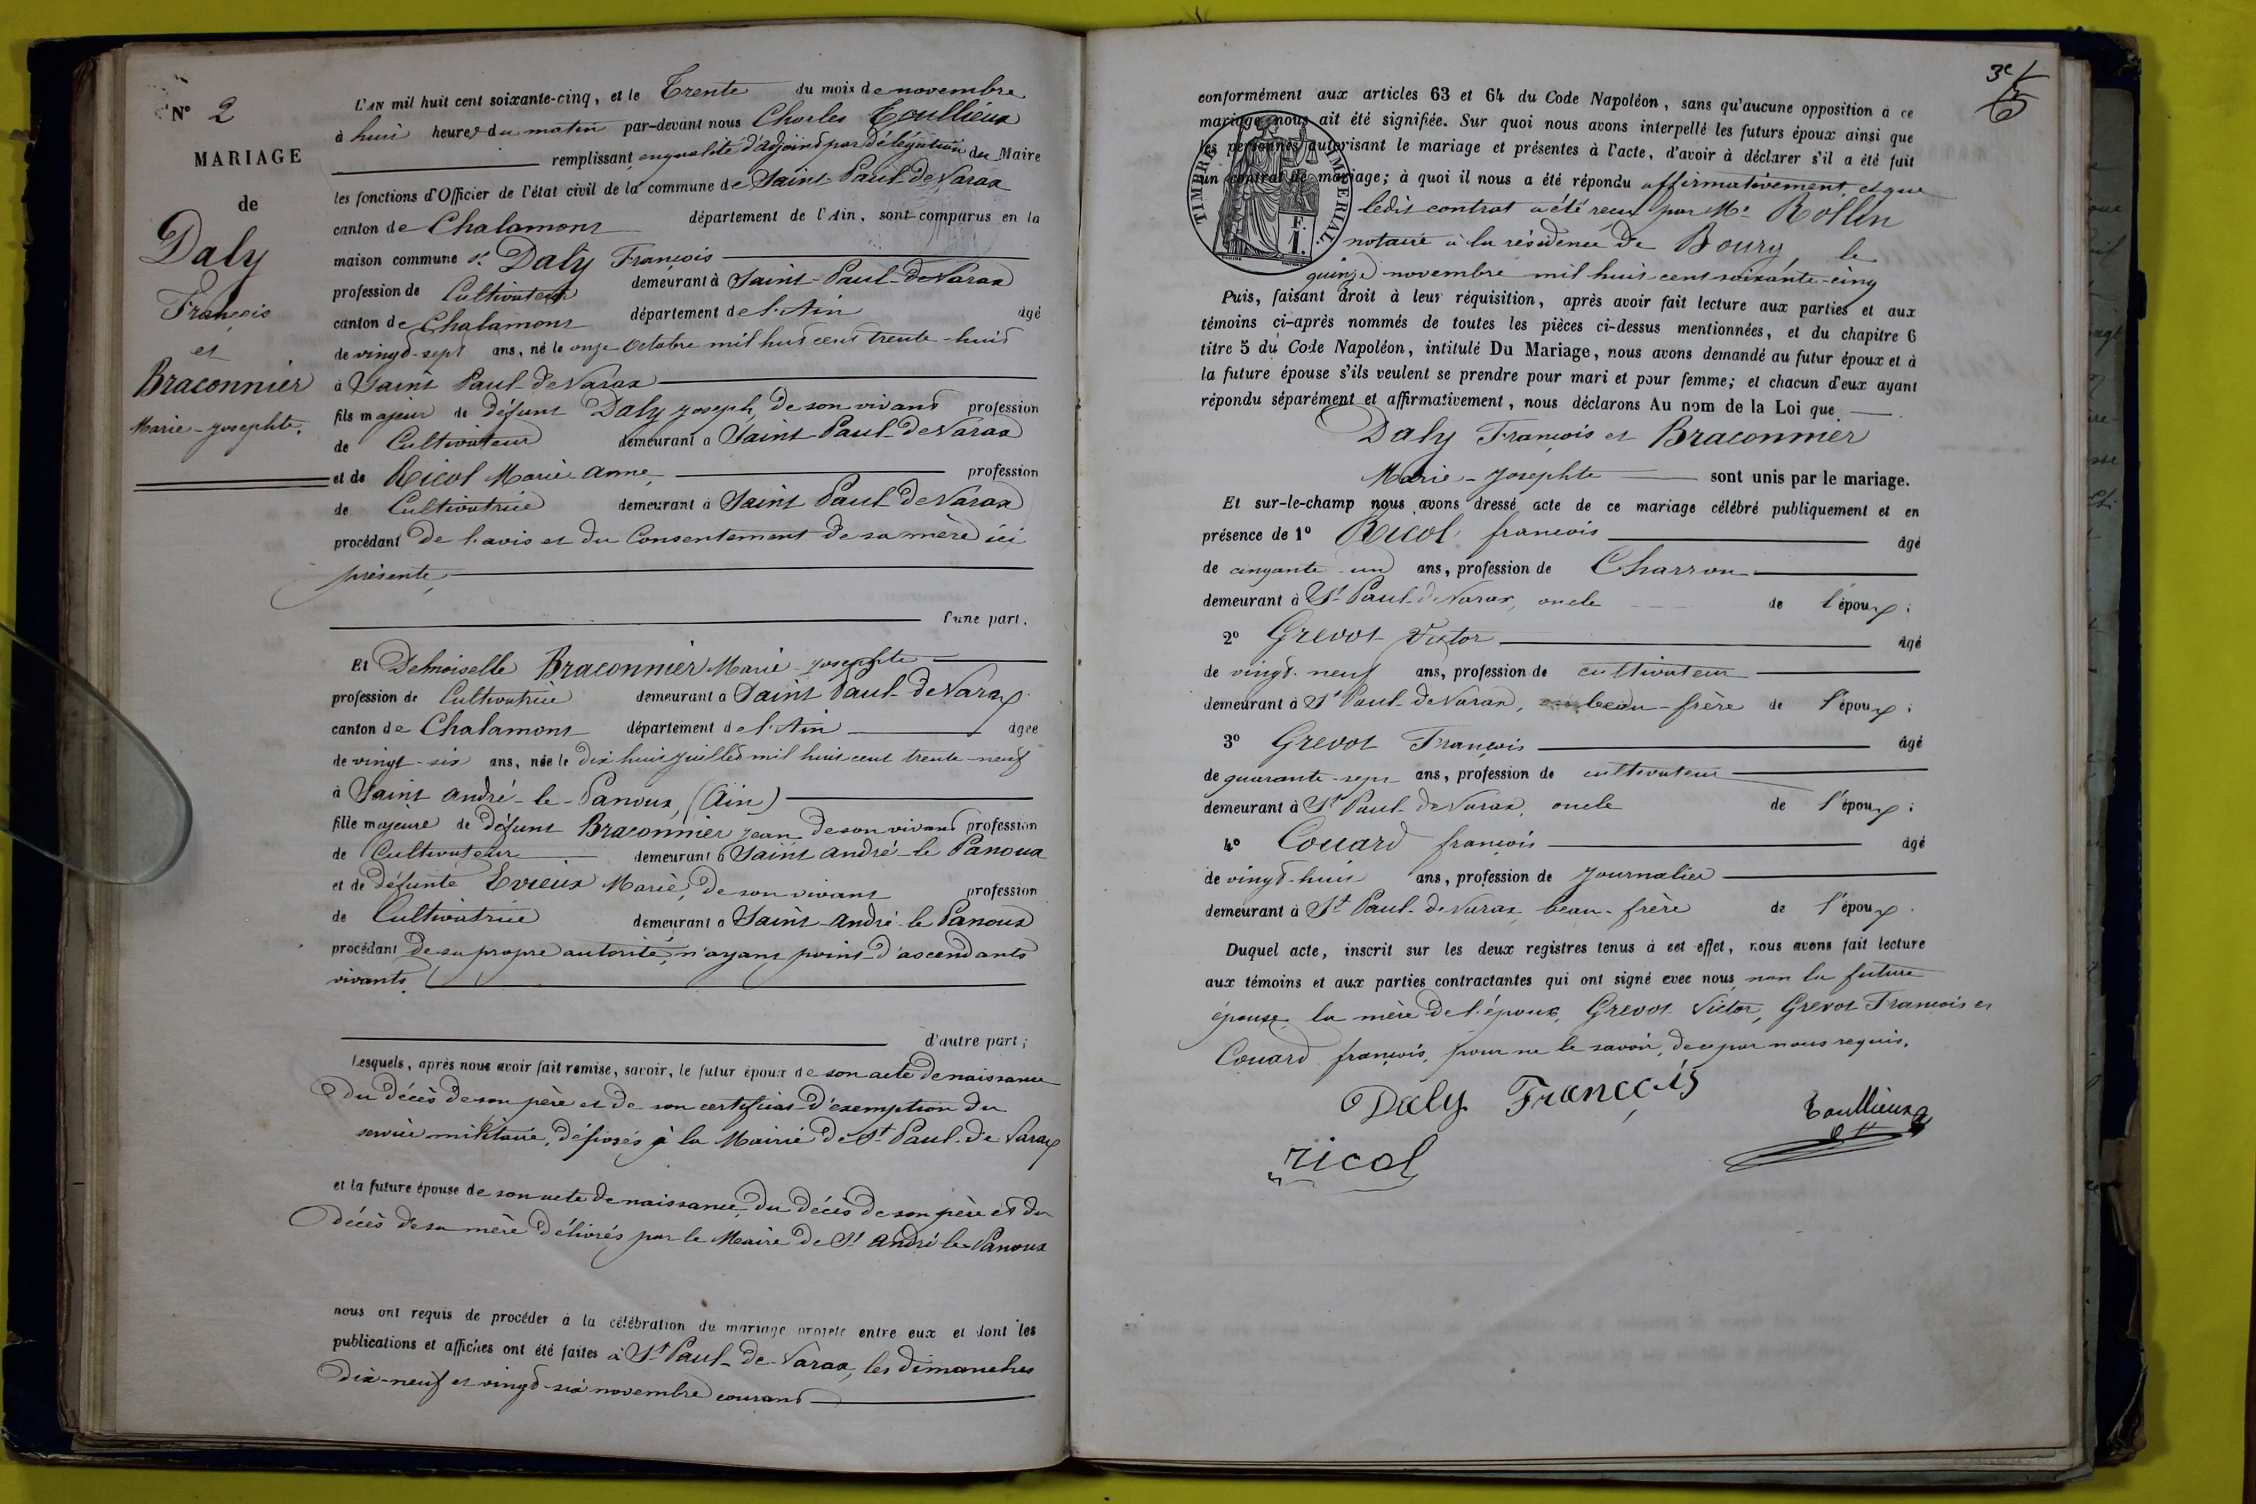 N° 2
MARIAGE
de
Daly
François
et
Braconnier
Marie-Josephte.
L'AN mil huit cent soixante-cinq, et le Trente du mois de novembre
à huit heures du matin par-devant nous Charles Toullieux
remplissant en qualité d'adjoint par délégation du Maire
les fonctions d'Officier de l'état civil de la commune de Saint-Paul-de Varax
canton de Chalamont département de l'Ain, sont comparus en la
maison commune sr. Daly François
profession de Cultivateur demeurant à Saint-Paul-de Varax
canton de Chalamont département de l'Ain âgé
de vingt-sept ans, né le onze Octobre mil huit cent trente-huit
à Saint Paul-de Varax
fils majeur de défunt Daly Joseph, de son vivant profession
de Cultivateur demeurant à Saint Paul-de Varax
et de Ricol Marie Anne, profession
de Cultivatrice demeurant à Saint Paul de Varax
procédant de l'avis et du Consentement de sa mère ici
présente,
d'une part.
Et Delmoiselle Braconnier Marie-Josephte
profession de Cultivatrice demeurant à Saint Paul-de Varax
canton de Chalamont département de l'Ain agée
de vingt-six ans, née le dix huit juillet mil huit cent trente-neuf
à Saint André-le-Panoux, (Ain)
fille majeure de défunt Braconnier Jean de son vivant profession
de Cultivateur demeurant à Saint André-le Panoux
et de défunte Evieux Marie, de son vivant profession
de Cultivatrice demeurant à Saint-André-le Panoux
procédant de sa propre autorité, n'ayant point d'ascendants
vivants.
d'autre part;
Lesquels, après nous avoir fait remise, savoir, le futur époux de son acte de naissance
du décès de son père et de son certificat d'exemption du
service militaire, déposés à la Mairie de St Paul-de Varax
et la future épouse de son acte de naissance, du décès de son père et du
décès de sa mère délivrés par le Maire de St André-le-Panoux
nous ont requis de procéder à la célébration du mariage projeté entre eux et dont les
publications et affiches ont été faites à St Paul-de-Varax, les dimanches
dix-neuf et vingt-six novembre courant
3e
conformément aux articles 63 et 64 du Code Napoléon, sans qu'aucune opposition à ce
mariage nous ait été signifiée. Sur quoi nous avons interpellé les futurs époux ainsi que
les personnes autorisant le mariage et présentes à l'acte, d'avoir à déclarer s'il a été fait
un contrat de mariage; à quoi il nous a été répondu affirmativement, et que
TIMBRE IMPÉRIAL
F.
1.
ledit contrat a été reçu par Me Rollin
notaire à la résidence de Bourg, le
quinze novembre mil huit cent soixante-cinq
Puis, faisant droit à leur réquisition, après avoir fait lecture aux parties et aux
témoins ci-après nommés de toutes les pièces ci-dessus mentionnées, et du chapitre 6
titre 5 du Code Napoléon, intitulé Du Mariage, nous avons demandé au futur époux et à
la future épouse s'ils veulent se prendre pour mari et pour femme; et chacun d'eux ayant
répondu séparément et affirmativement, nous déclarons Au nom de la Loi que
Daly François et Braconnier
Marie-Josephte sont unis par le mariage.
Et sur-le-champ nous avons dressé acte de ce mariage célébré publiquement et en
présence de 1° Ricol françois âgé
de cinquante un ans, profession de Charron
demeurant à St Paul-de Varax, oncle de l'époux;
2° Grevot Victor âgé
de vingt-neuf ans, profession de cultivateur
demeurant à St Paul-de Varax, beau-frère de l'époux;
3° Grevot François âgé
de quarante-sept ans, profession de cultivateur
demeurant à St Paul-de Varax, oncle de l'époux;
4° Couard françois âgé
de vingt-huit ans, profession de Journalier
demeurant à St Paul-de Varax, beau-frère de l'époux.
Duquel acte, inscrit sur les deux registres tenus à cet effet, nous avons fait lecture
aux témoins et aux parties contractantes qui ont signé avec nous, non la future
épouse, la mère de l'époux, Grevot Victor, Grevot François et
Couard françois, pour ne le savoir, de ce par nous requis.
Daly François
Toullieux
ricol